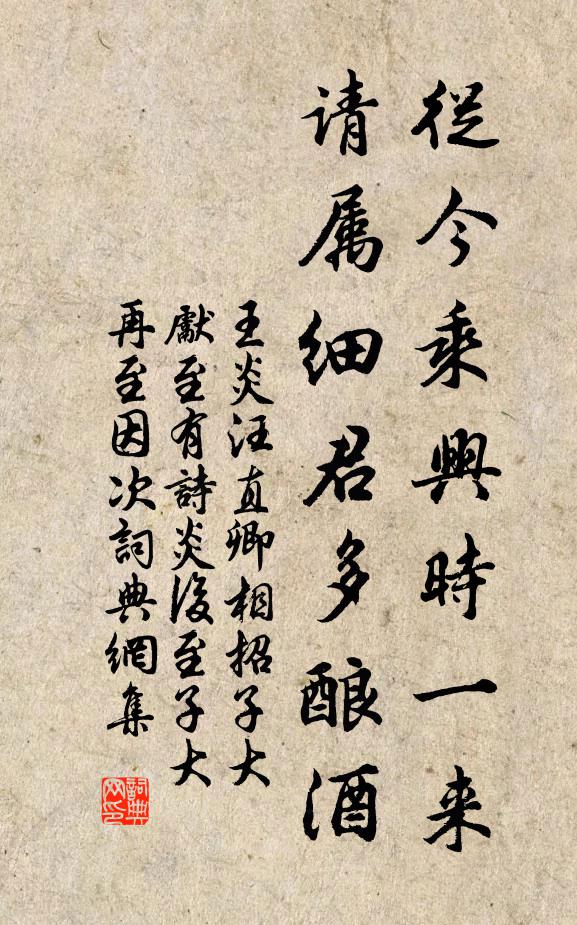 從今乘興時一来
请属细君多酿酒
王炎汪直卿相招子大
獻至有詩炎後至子大
再至因次詞典網集
詞典
网印